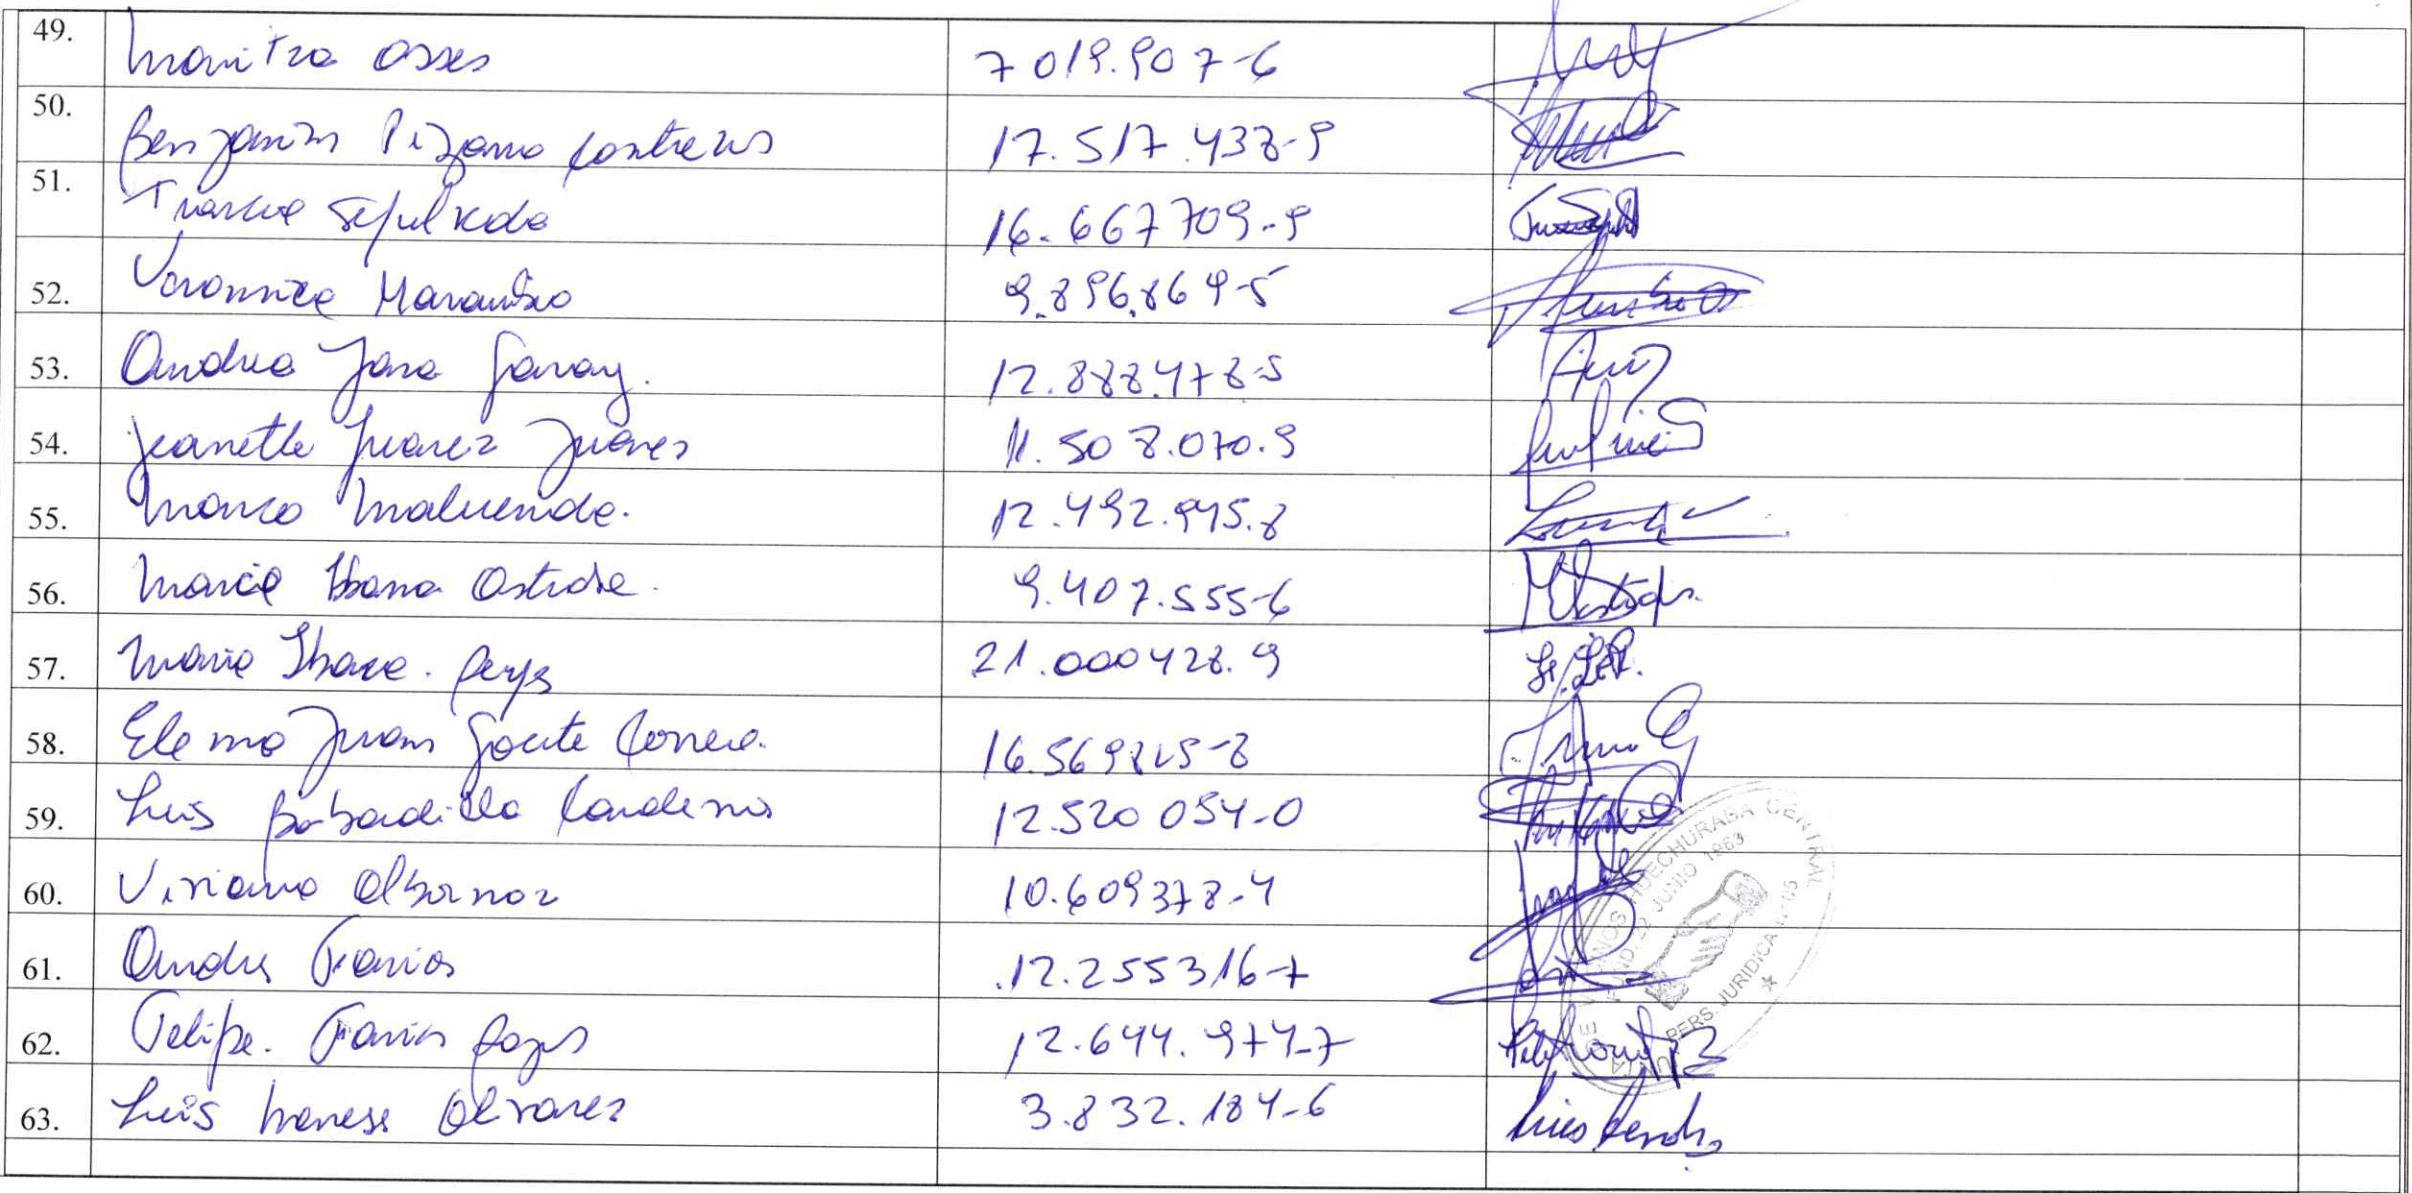 49. Maritza Osses 7019.907-6
50. Benjamin Pizarro Contreras 17.517.438-9
51. Francie Sepulveda 16.667709-9
52. Veronica Marambio 9.896.869-5
53. Andrea Jara Garay. 12.888.478-5
54. Jeanette Juarez Juarez 11.508.070.9
55. Marco Maluenda. 12.492.945.8
56. Maria Ostrode. 9.407.555-6
57. Maria 21.000428.9
58. Juan Correa. 16.569825-8
59. Luis Bobadilla Cardenas 12.520 054-0
60. Viviana Albornoz 10.609378-4
61. Andres Farias .12.255316-7
62. Felipe. Farias 12.644.974-7
63. Luis Meneses Alvarez 3.832.184-6
VECINOS HUECHURABA CENTRAL
FUND. 22 JUNIO 1963
PERS. JURIDICA
JUNTA DE